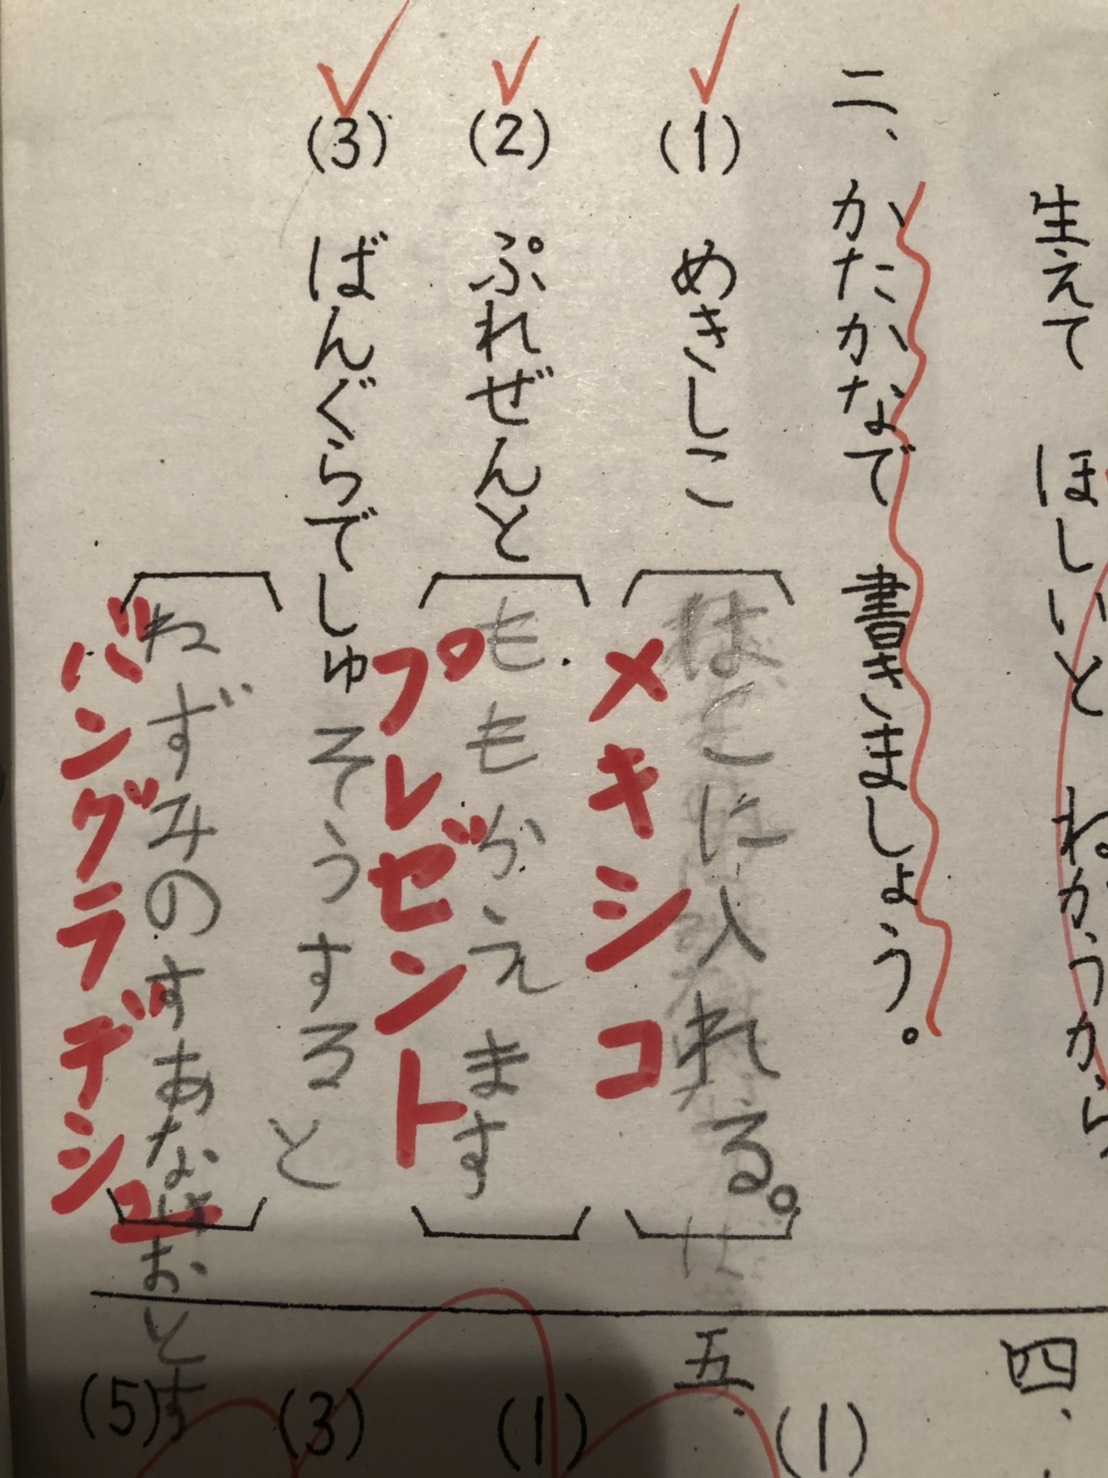 生えて ほしいと ねがうから
二、かたかなで 書きましょう。
(1) めきしこ
はこに入れる。
メキシコ
(2) ぷれぜんと
ももかえます
プレゼント
(3) ばんぐらでしゅ
そうすると
ねずみのすあな
おとす
バングラデシュ
四、
(1)
五、
(1)
(3)
(5)